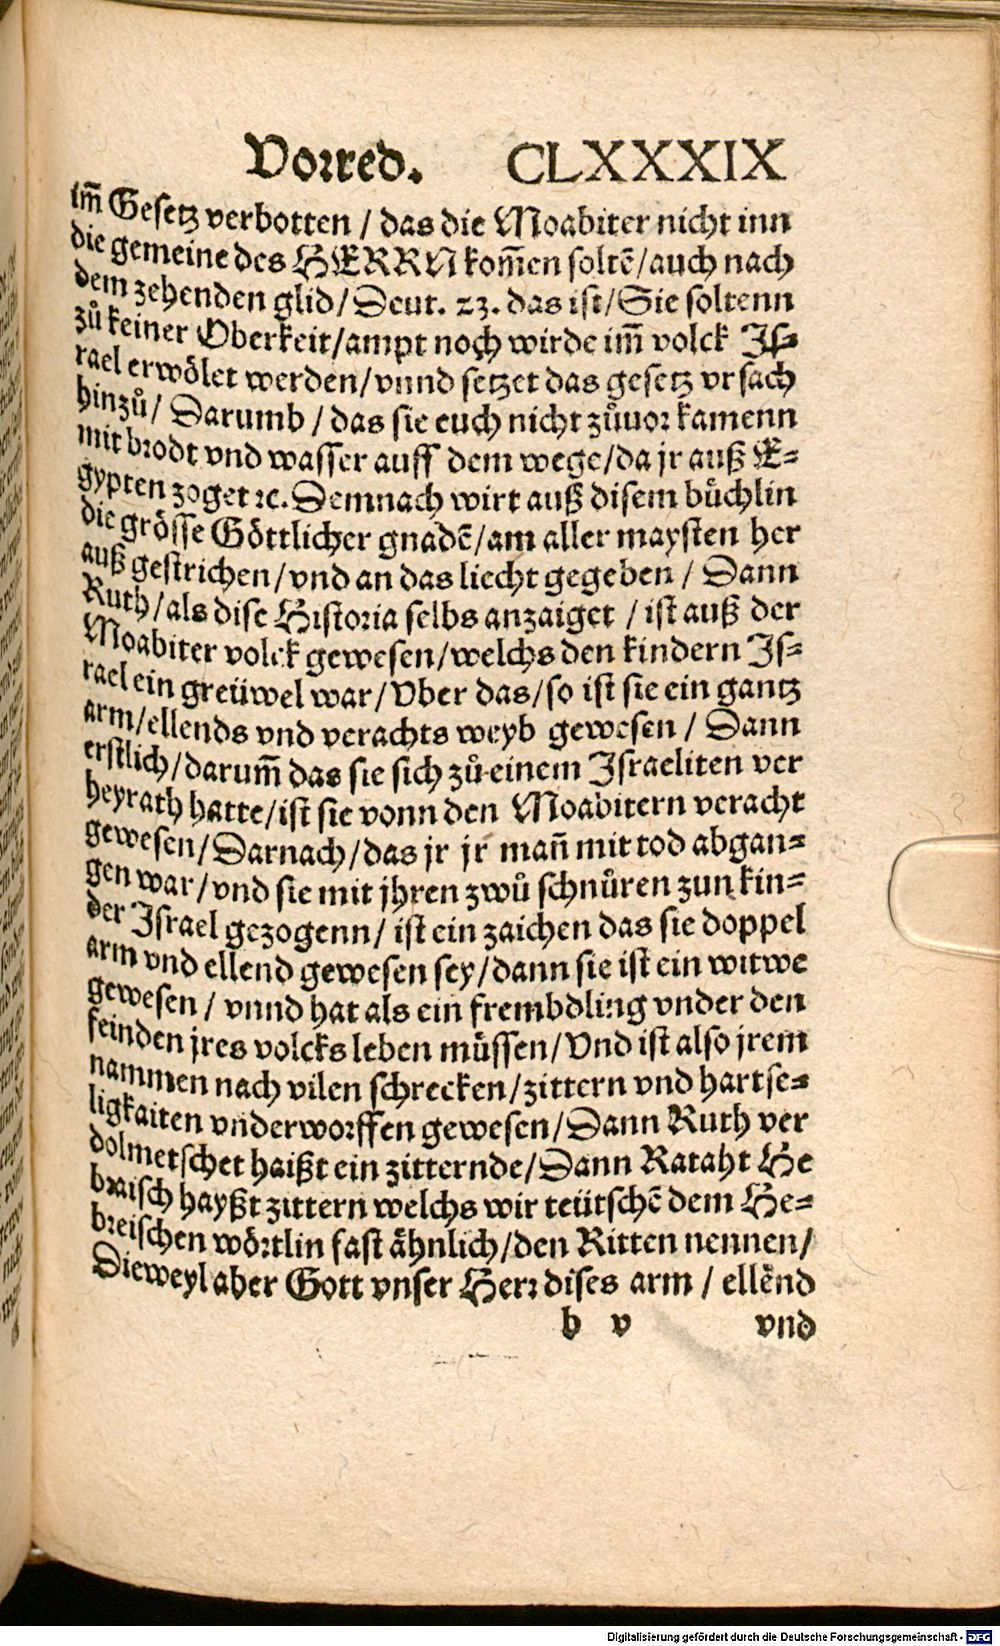 Vorred. CLXXXIX
im̄ Gesetz verbotten / das die Moabiter nicht inn
die gemeine des HERRN kom̄en soltē/auch nach
dem zehenden glid/Deut. 23. das ist/Sie soltenn
zů keiner Oberkeit/ampt noch wirde im̄ volck Js-
rael erwölet werden/vnnd setzet das gesetz vrsach
hinzů/ Darumb / das sie euch nicht zůuor kamenn
mit brodt vnd wasser auff dem wege/da jr auß E-
gypten zoget ꝛc. Demnach wirt auß disem bůchlin
die grösse Göttlicher gnadē/am aller maysten her
auß gestrichen/vnd an das liecht gegeben / Dann
Ruth/als dise Historia selbs anzaiget / ist auß der
Moabiter volck gewesen/welchs den kindern Js-
rael ein greüwel war/Vber das/so ist sie ein gantz
arm/ellends vnd verachts weyb gewesen / Dann
erstlich/darum̄ das sie sich zů einem Jsraeliten ver
heyrath hatte/ist sie vonn den Moabitern veracht
gewesen/Darnach/das jr jr man̄ mit tod abgan-
gen war/vnd sie mit jhren zwů schnůren zun kin-
der Jsrael gezogenn/ ist ein zaichen das sie doppel
arm vnd ellend gewesen sey/dann sie ist ein witwe
gewesen / vnnd hat als ein frembdling vnder den
feinden jres volcks leben müssen/Vnd ist also jrem
nammen nach vilen schrecken/zittern vnd hartse-
ligkaiten vnderworffen gewesen/Dann Ruth ver
dolmetschet haißt ein zitternde/Dann Rataht He
braisch hayßt zittern welchs wir teütschē dem He-
breischen wörtlin fast ähnlich/den Ritten nennen/
Dieweyl aber Gott vnser Herr dises arm / ellend
b v vnd
Digitalisierung gefördert durch die Deutsche Forschungsgemeinschaft - DFG